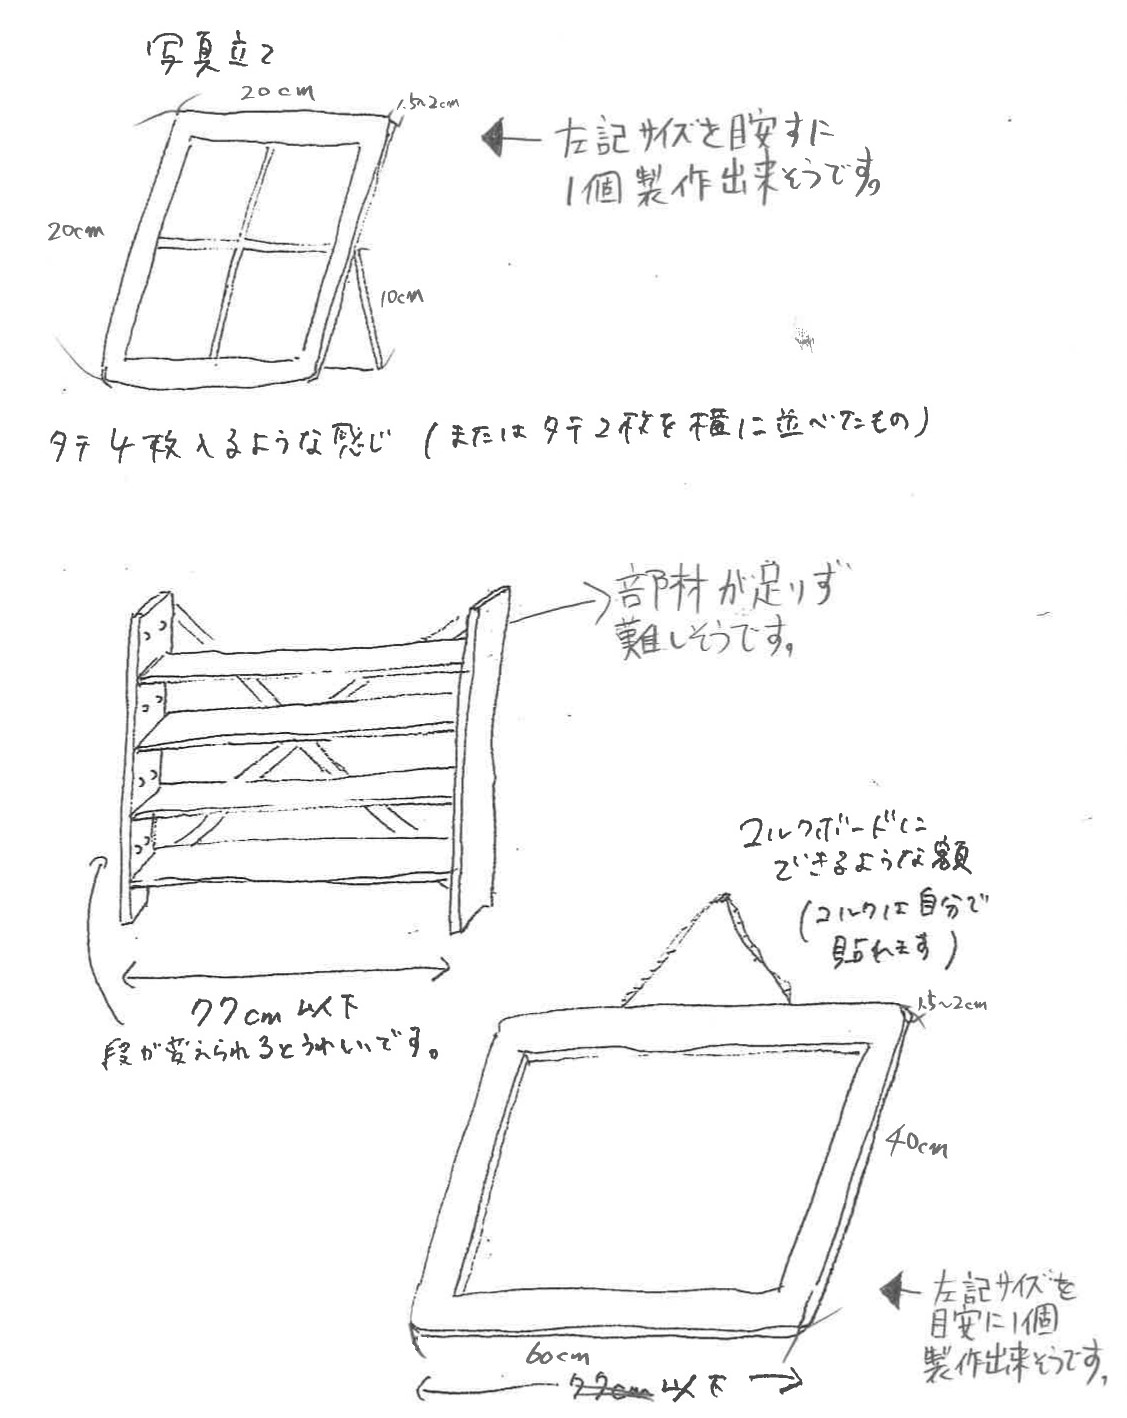 写真立て
20cm
1.5~2cm
左記サイズを目安すに
1個製作出来そうです。
20cm
10cm
タテ4枚入るような感じ（またはタテ2枚を横に並べたもの）
部材が足りず
難しそうです。
77cm以下
段が変えられるとうれしいです。
コルクボードに
できるような額
（コルクは自分で
貼れます）
1.5~2cm
40cm
左記サイズを
目安に1個
製作出来そうです。
60cm
77cm以下